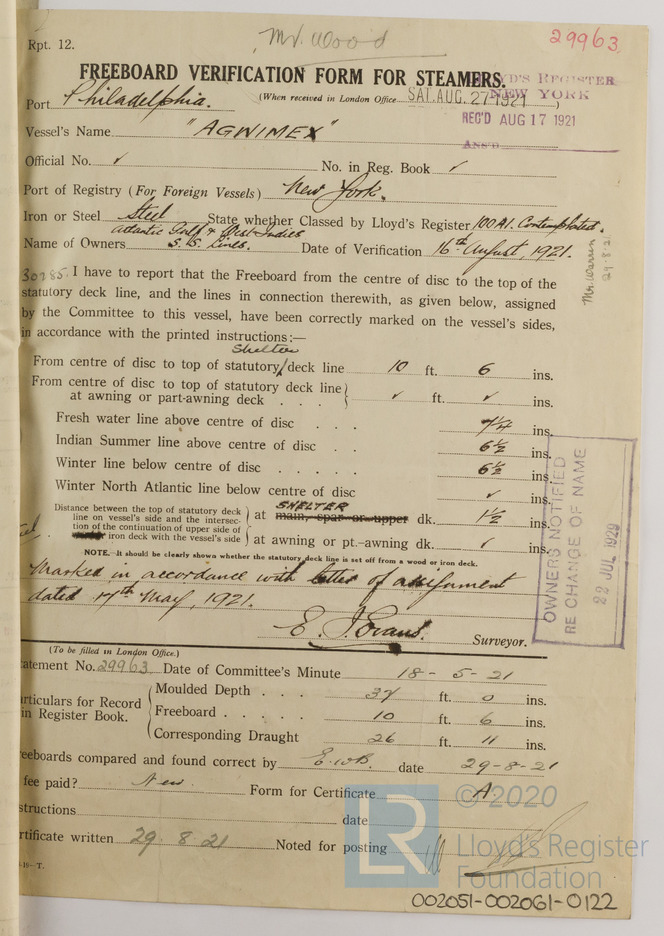 Rpt. 12.
Mr. Wood
29963
FREEBOARD VERIFICATION FORM FOR STEAMERS.
LLOYD'S REGISTER
NEW YORK
REC'D AUG 17 1921
ANS'D
Port Philadelphia. (When received in London Office SAT. AUG. 27 1921)
Vessel's Name "AGWIMEX"
Official No. ✓ No. in Reg. Book ✓
Port of Registry (For Foreign Vessels) New York.
Iron or Steel Steel State whether Classed by Lloyd's Register 100A1. Contemplated.
Name of Owners Atlantic Gulf & West Indies S.S. Lines. Date of Verification 16th August, 1921.
Mr. Warren
29.8.21
30285. I have to report that the Freeboard from the centre of disc to the top of the
statutory deck line, and the lines in connection therewith, as given below, assigned
by the Committee to this vessel, have been correctly marked on the vessel's sides,
in accordance with the printed instructions:—
From centre of disc to top of statutory/Shelter deck line 10 ft. 6 ins.
From centre of disc to top of statutory deck line
at awning or part-awning deck . . . ✓ ft. ✓ ins.
Fresh water line above centre of disc . . . 7¼ ins.
Indian Summer line above centre of disc . . 6½ ins.
Winter line below centre of disc . . . . . 6½ ins.
Winter North Atlantic line below centre of disc ✓ ins.
Distance between the top of statutory deck
line on vessel's side and the intersec-
tion of the continuation of upper side of
iron deck with the vessel's side
at SHELTER main, spar or upper dk. 1½ ins.
at awning or pt.-awning dk. ✓ ins.
NOTE.—It should be clearly shown whether the statutory deck line is set off from a wood or iron deck.
Marked in accordance with letter of assignment
dated 17th May, 1921.
E. J. Evans. Surveyor.
OWNERS NOTIFIED
RE CHANGE OF NAME
22 JUL 1929
(To be filled in London Office.)
tatement No. 29963 Date of Committee's Minute 18-5-21
articulars for Record
in Register Book.
Moulded Depth . . . 37 ft. 0 ins.
Freeboard . . . . . 10 ft. 6 ins.
Corresponding Draught 26 ft. 11 ins.
reeboards compared and found correct by E.W.B. date 29-8-21
fee paid? New. Form for Certificate A.
structions date
rtificate written 29.8.21 Noted for posting
-10—T.
LR
© 2020
Lloyd's Register
Foundation
002051-002061-0122